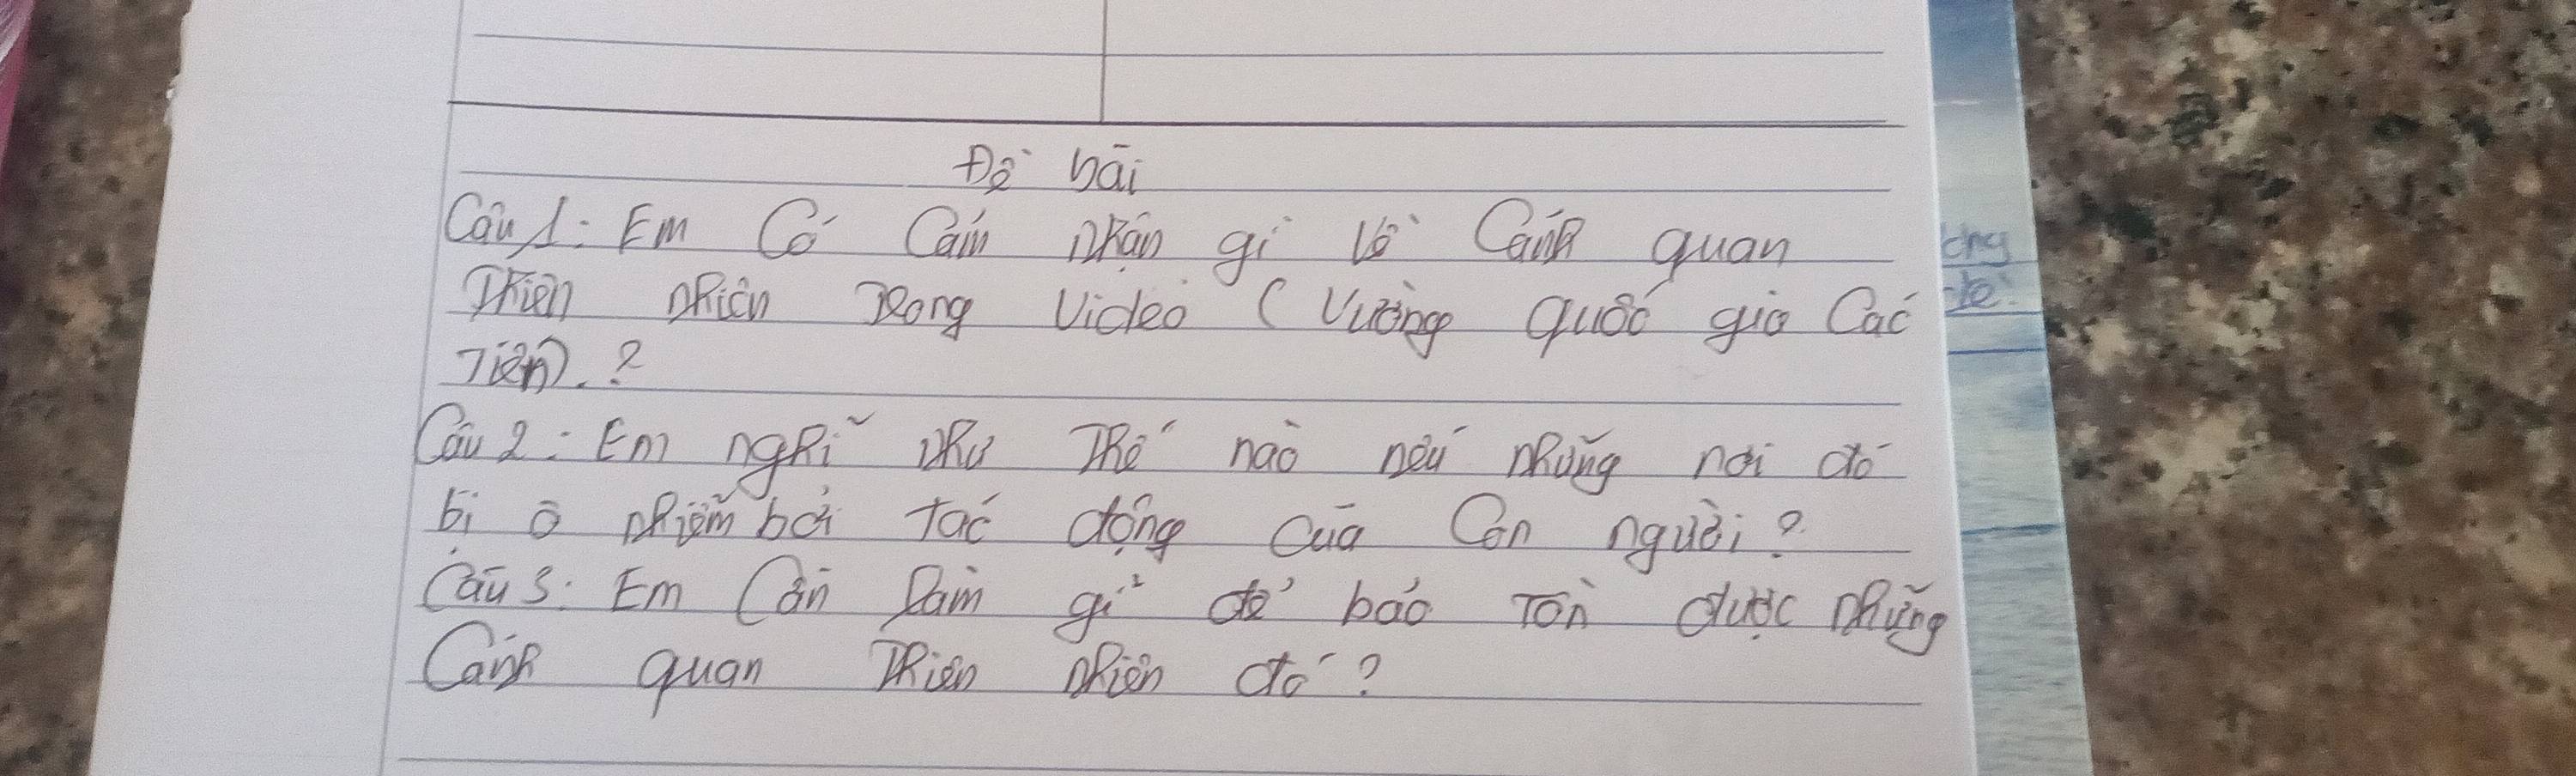 Đề bài
Câu 1: Em Có Cảm nhận gì Về Cảnh quan
Thiên nhiên Trong Video ( Vường quốc gia Các
Tiên).?
Câu 2: Em nghĩ như Thế nào nếu những nơi đó
bị ô nhiễm bởi tác động của Con người?
Câu 3: Em Cần Làm gì để bảo Tồn được những
Cảnh quan Thiên nhiên đó?